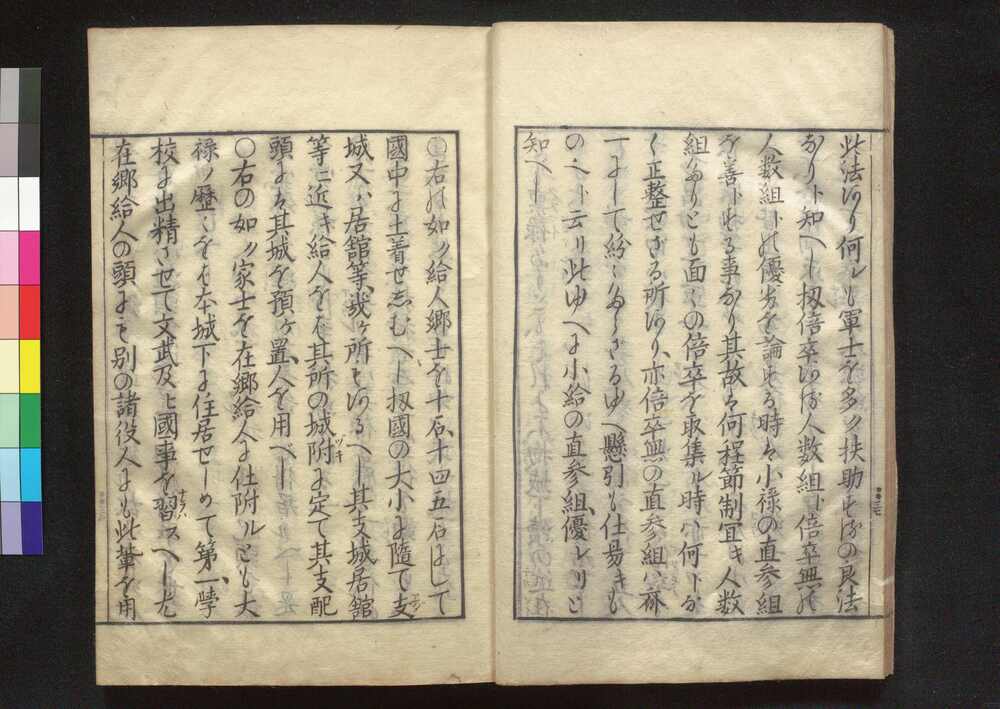 此法あり何レも軍士を多ク扶助する の良法
なりト知へし扨倍卒ある人数組ト倍卒無の
人数組トの優劣を論する時ハ小禄の直参組
を善トする事なり其故ハ何程節制宜キ人数
組なりとも面〻の倍卒を取集ル時ハ何トな
く正整せさる所あり亦倍卒無の直参組ハ麻
丁にして紛〻ならさるゆへ懸引も仕易きも
のなりト云リ此ゆへに小給の直参組優レリと
知へし
〇右の如ク給人郷士を十石十四五石にして
國中に土着せしむへし扨國の大小に隨て支
城又ハ居舘等、幾ヶ所もあるへし其支城居舘
等ニ近キ給人をハ其所の城附ツキに定て其支配
頭にハ其城を預ヶ置、人を用へし
〇右の如ク家士を在郷給人に仕附ルとも大
禄ノ歷〻をハ本城下に住居せしめて第一、學
校に出精させて文武及ヒ國事を習ナラハスへし尤
在郷給人の頭にも別の諸役人にも此輩を用